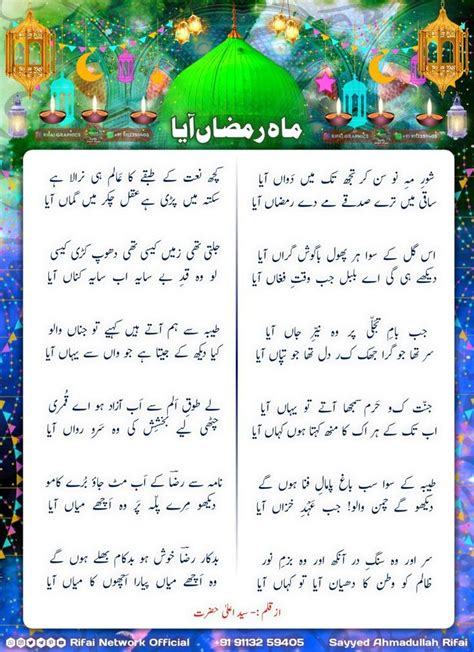 ماہ رمضاں آیا
RIFAI GRAPHICS
+91 9113259405
RIFAI GRAPHICS
+91 9113259405
شورِ مہِ نو سن کر تجھ تک میں دَواں آیا
ساقی میں ترے صدقے مے دے رمضاں آیا
اس گل کے سوا ہر پھول باگوشِ گراں آیا
دیکھے ہی گی اے بلبل جب وقتِ فغاں آیا
جب بامِ تجلّی پر وہ نیّرِ جاں آیا
سر تھا جو گرا جھک کر دل تھا جو تپاں آیا
جنّت کو حَرم سمجھا آتے تو یہاں آیا
اب تک کے ہر اک کا منھ کہتا ہوں کہاں آیا
طیبہ کے سوا سب باغ پامالِ فنا ہوں گے
دیکھو گے چمن والو! جب عہدِ خزاں آیا
سر اور وہ سنگِ در آنکھ اور وہ بزمِ نور
ظالم کو وطن کا دھیان آیا تو کہاں آیا
کچھ نعت کے طبقے کا عالم ہی نرالا ہے
سکتہ میں پڑی ہے عقل چکر میں گماں آیا
جلتی تھی زمیں کیسی تھی دھوپ کڑی کیسی
لو وہ قدِ بے سایہ اب سایہ کناں آیا
طیبہ سے ہم آتے ہیں کہیے تو جناں والو
کیا دیکھ کے جیتا ہے جو واں سے یہاں آیا
لے طوقِ اَلم سے اب آزاد ہو اے قُمری
چٹھی لیے بخشِش کی وہ سَرو رواں آیا
نامہ سے رضؔا کے اَب مٹ جاؤ بُرے کامو
دیکھو مِرے پلّہ پَر وہ اَچھے میاں آیا
بدکار رضؔا خوش ہو بدکام بھلے ہوں گے
وہ اَچھے میاں پیارا اَچھوں کا میاں آیا
از قلم :- سید اعلیٰ حضرت
Rifai Network Official
+91 91132 59405
Sayyed Ahmadullah Rifai